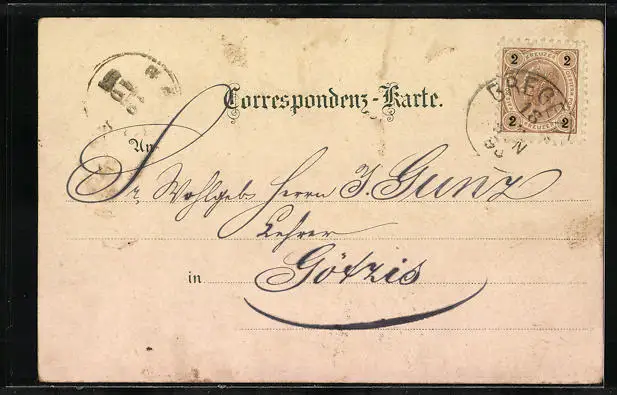 2 KREUZER 2
2 KREUZER 2
BREG
18
Correspondenz-Karte.
An
Sr. Wohlgeb Herrn J. Gunz
Lehrer
in Götzis